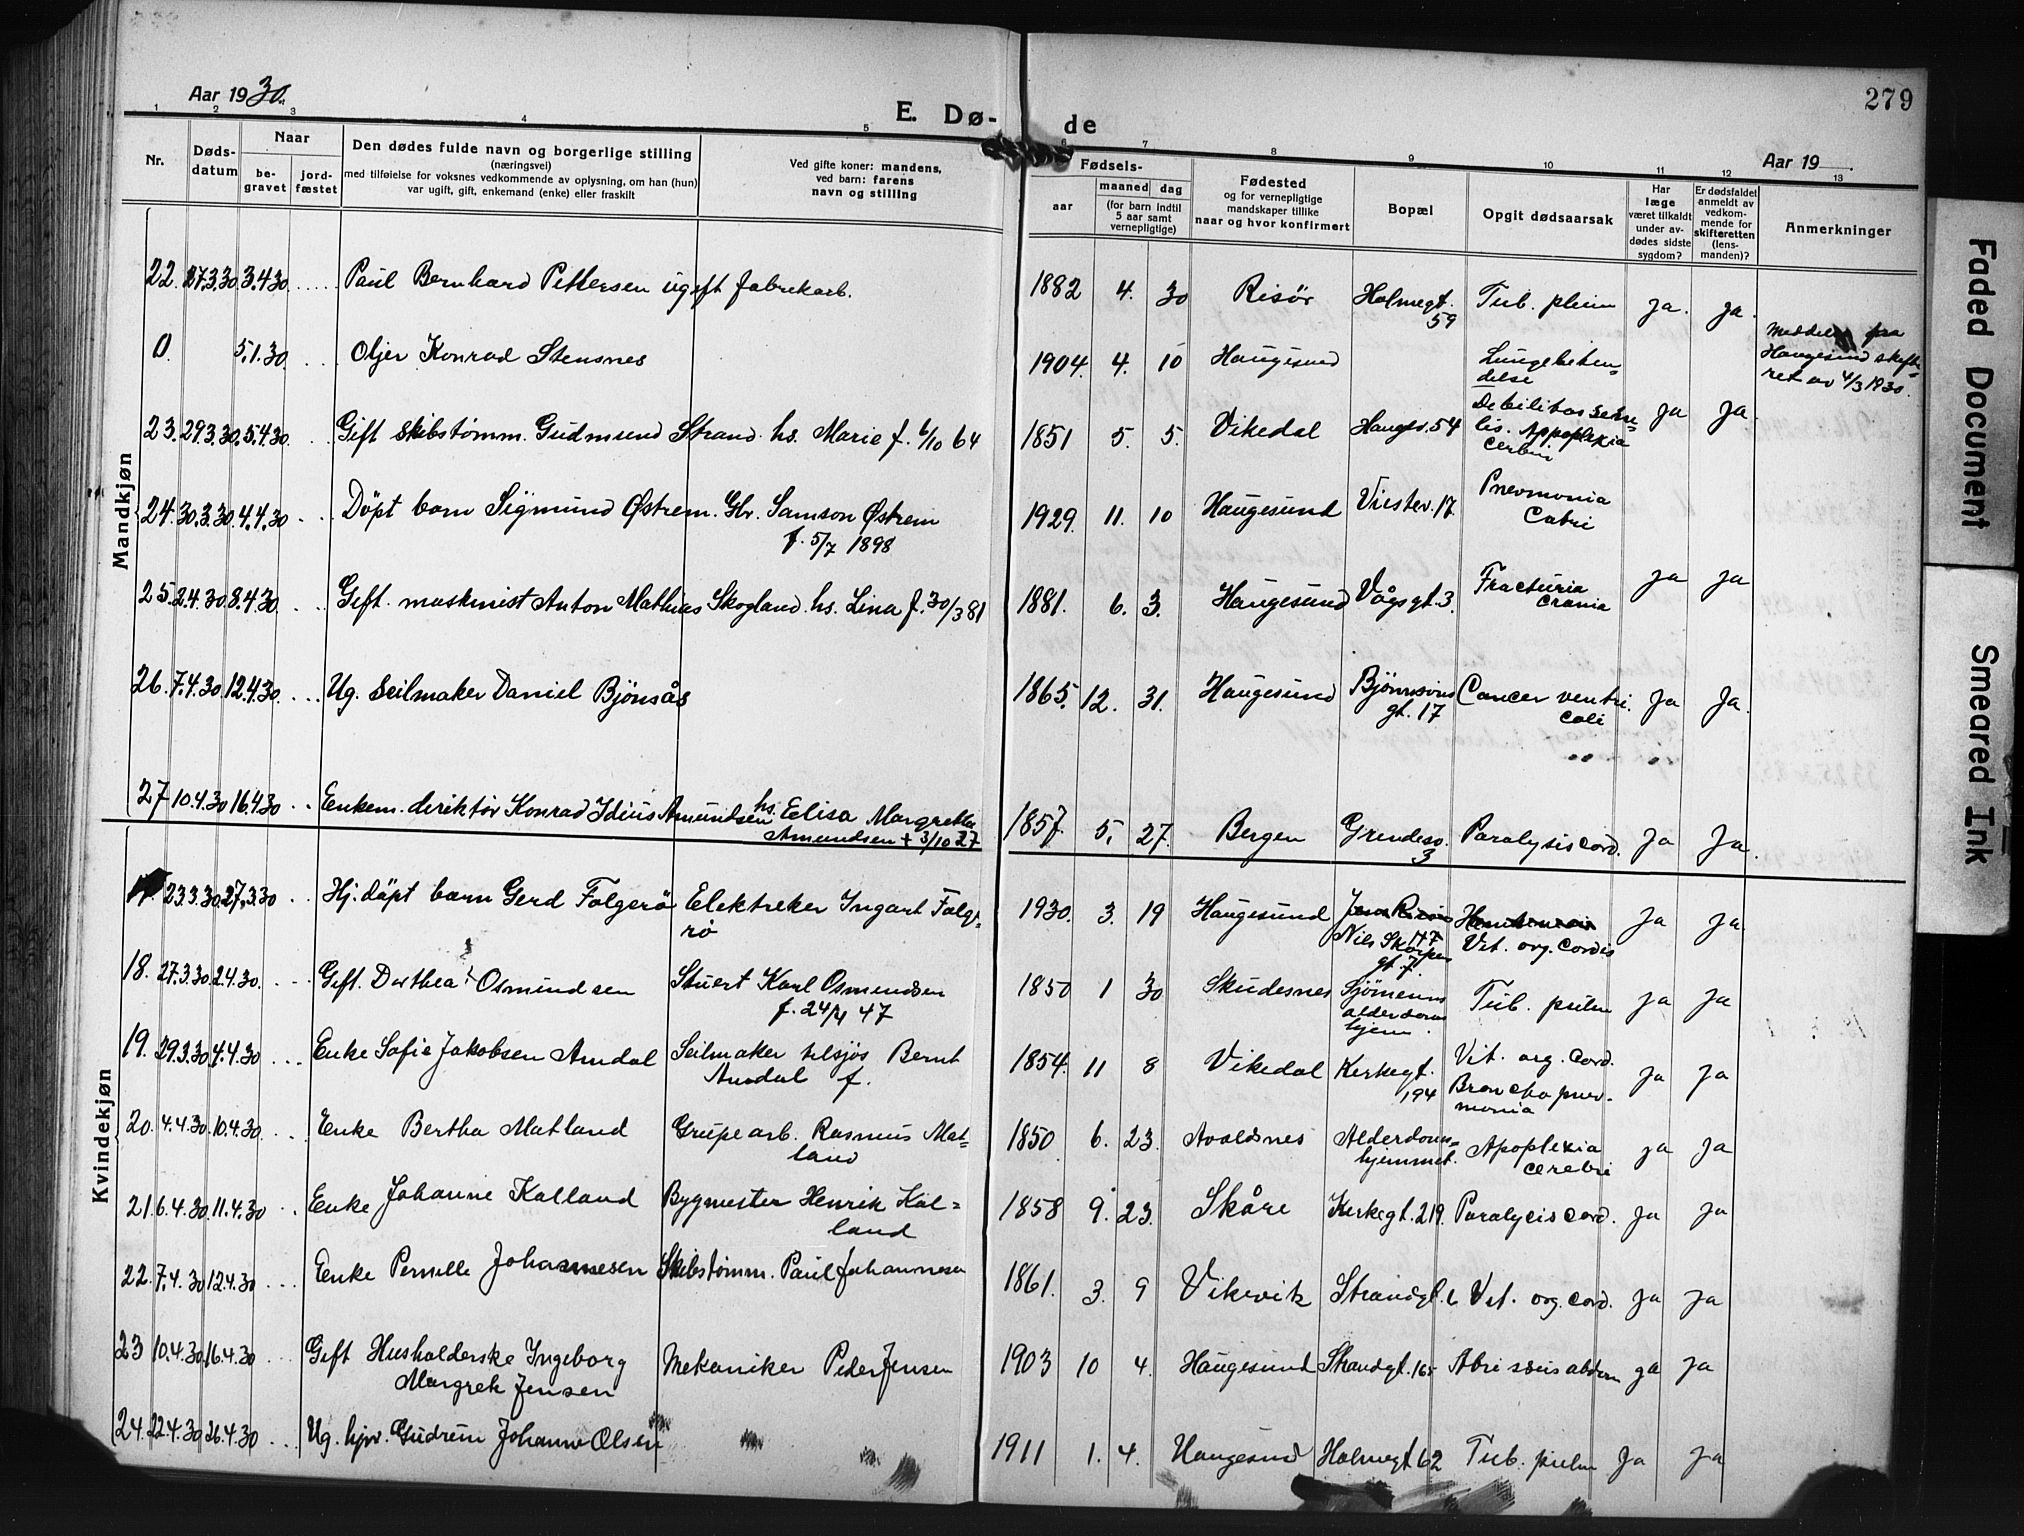 Aar 1930.
E. Dø-
de
279
Aar 19
1 2 3 4 5 6 7 8 9 10 11 12 13
Nr.
Døds-
datum
Naar
be-
gravet
jord-
fæstet
Den dødes fulde navn og borgerlige stilling
(næringsvei)
med tilføielse for voksnes vedkommende av oplysning, om han (hun)
var ugift, gift, enkemand (enke) eller fraskilt
Ved gifte koner: mandens,
ved barn: farens
navn og stilling
Fødsels-
aar
maaned dag
(for barn indtil
5 aar samt
vernepligtige)
Fødested
og for vernepligtige
mandskaper tillike
naar og hvor konfirmert
Bopæl
Opgit dødsaarsak
Har
læge
været tilkaldt
under av-
dødes sidste
sygdom?
Er dødsfaldet
anmeldt av
vedkom-
mende for
skifteretten
(lens-
manden)?
Anmerkninger
Mandkjøn
22. 27.3.30 3.4.30 Paul Bernhard Pettersen ugift fabrikarb. 1882 4. 30 Risör Holmegt. Tub. plum ja. ja.
59
0. 5.1.30. Oljer Konrad Stensnes 1904. 4. 10 Haugesund Lungebeten=
delse
fra
Haugesund skifte=
ret av 4/3 1930.
23. 29.3.30. 5.4.30. Gift skibstømm. Gudmund Strand. hs. Marie f. 6/10 64 1851 5. 5. Vikedal Haugev. 54 Debilitas seni=
lis. Appoplexia
Cerbri ja ja
24. 30.3.30. 4.4.30 Döpt barn Sigmund Østrem. Gbr. Samson Østrem
f. 5/7 1898 1929. 11. 10 Haugesund Viestev. 17. Pnevmonia
Catri
25. 2.4.30 8.4.30. Gift. maskinist Anton Mathias Skogland. hs. Lina f. 30/3 81 1881. 6. 3. Haugesund Vågsgt. 3. Fracturia
Crania ja ja
26. 7.4.30. 12.4.30. Ug. Seilmaker Daniel Bjönsås 1865. 12. 31. Haugesund Bjørnsons
gt. 17 Cancer ventri.
coli ja ja.
27 10.4.30 16.4.30 Enkem. direktör Konrad Idius Amundsen hs. Elisa Margrethe
Amundsen + 3/10 27 1857. 5. 27. Bergen Grendesv.
3 Paralysis cord. ja ja.
Kvindekjøn
17. 23.3.30. 27.3.30 Hj. döpt barn Gerd Falgerö Elektriker Ingart Falge=
rö 1930. 3. 19 Haugesund
Nils Skorpes
gt. 7. Vit. org. Cordis ja ja.
18. 27.3.30. 2.4.30. Gift. Dorthea Osmundsen Stuert Karl Osmundsen
f. 24/4 47 1850 1 30 Skudesnes Sjömenns
alderdoms
hjem. Tub. pulm ja ja
19. 29.3.30. 4.4.30 Enke Sofie Jakobsen Amdal Seilmaker tilsjös Bernt
Amdal f. 1854. 11 8 Vikedal Kirkegt.
194 Vit. org. Cord.
Bronchopnev-
monia ja ja
20. 4.4.30. 10.4.30. Enke Bertha Matland Grubearb. Rasmus Mat=
land 1850 6. 23. Avaldsnes Alderdoms=
hjemmet. Apoplexia
cerebri ja ja
21. 6.4.30. 11.4.30 Enke Johanne Kalland Bygmester Henrik Kal=
land 1858 9. 23. Skåre Kirkegt. 219. Paralysis cord. ja ja
22. 7.4.30 12.4.30 Enke Pernille Johannesen Skibstømm. Paul Johannesen 1861. 3. 9 Vikevik Strandgt. 6 Vit. org. cord. ja ja
23 10.4.30 16.4.30 Gift Husholderske Ingeborg
Margrek Jensen Mekaniker Peder Jensen 1903 10 4. Haugesund Skandgt. 165 abdom ja ja
24. 22.4.30 26.4.30 Ug. hjv. Gudrun Johanne Olsen 1911 1. 4. Haugesund Holmegt 62 Tub. pulm ja ja
Faded Document
Smeared Ink